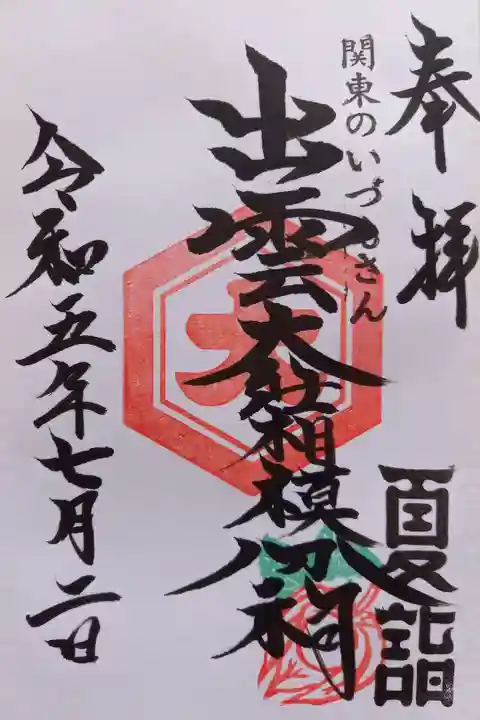 奉拝
関東のいづもさん
出雲大社相模分祠
夏詣
令和五年七月二日
大